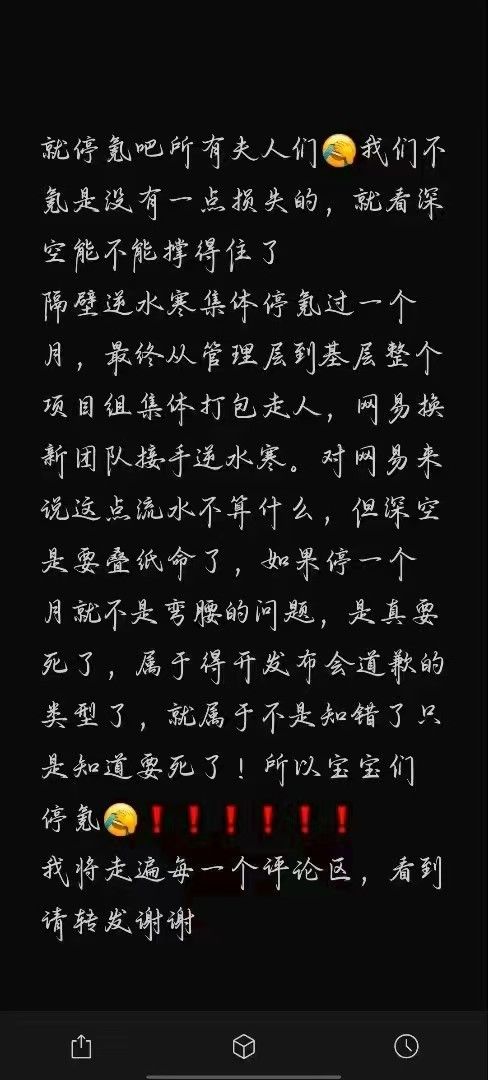 就停氪吧所有夫人们🤦我们不
氪是没有一点损失的，就看深
空能不能撑得住了
隔壁逆水寒集体停氪过一个
月，最终从管理层到基层整个
项目组集体打包走人，网易换
新团队接手逆水寒。对网易来
说这点流水不算什么，但深空
是要叠纸命了，如果停一个
月就不是弯腰的问题，是真要
死了，属于得开发布会道歉的
类型了，就属于不是知错了只
是知道要死了！所以宝宝们
停氪🤦❗❗❗❗❗❗
我将走遍每一个评论区，看到
请转发谢谢